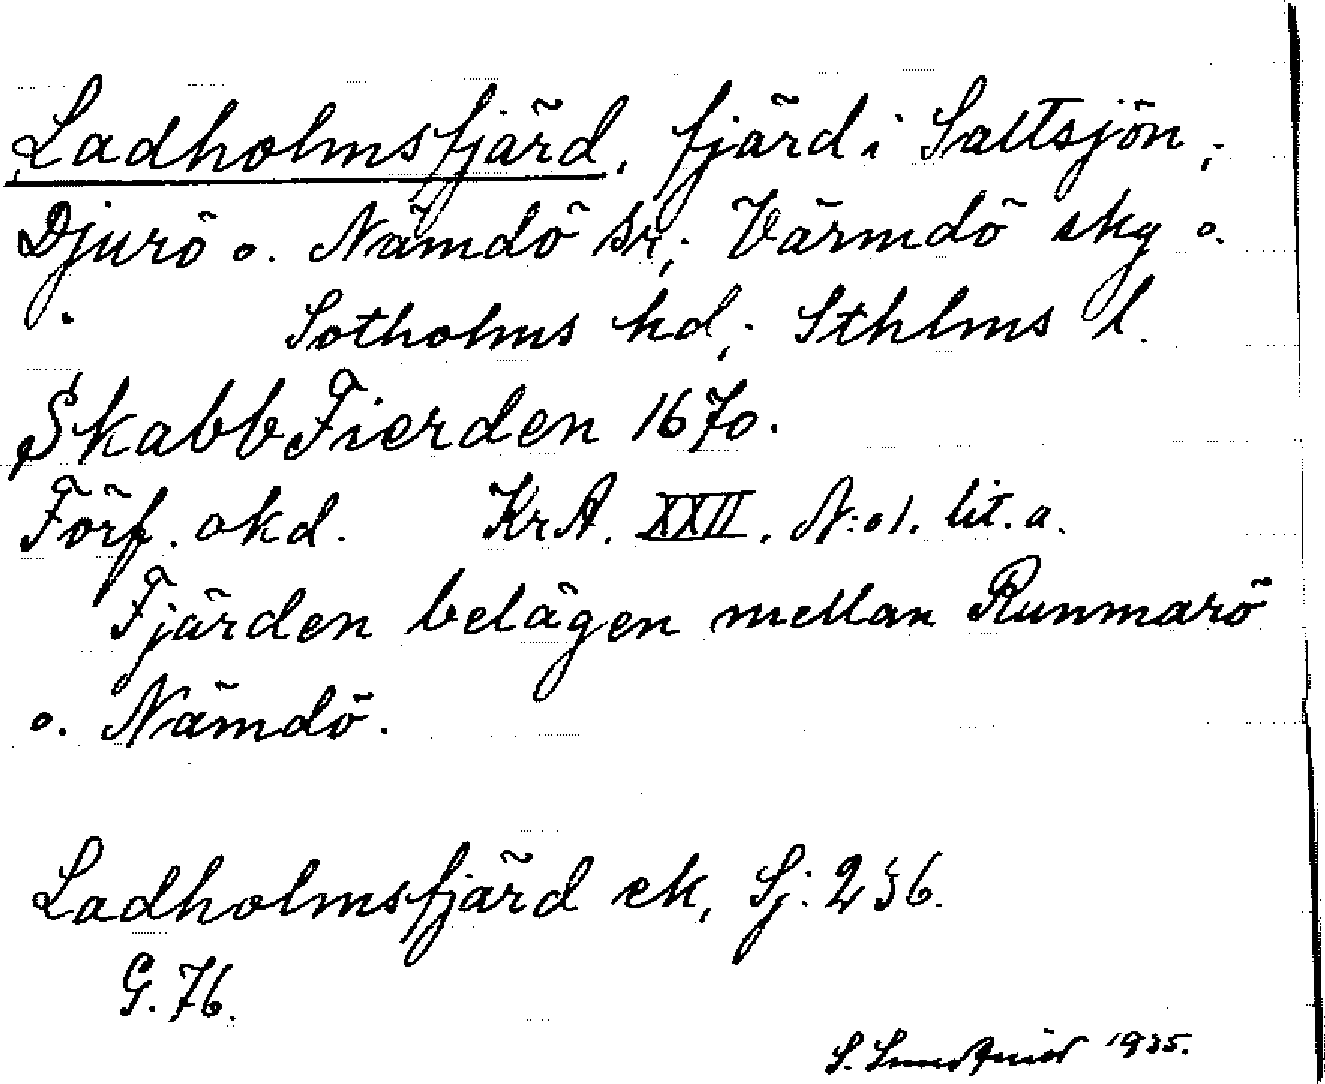 Ladholmsfjärd, fjärd i Saltsjön,
Djurö o. Nämdö sr, Värmdö skg o.
Sotholms hd, Sthlms l.
SkabbFierden 1670.
Förf. okd. KrA. XXII. N:o 1. lit. a.
Fjärden belägen mellan Runmarö
o. Nämdö.
Ladholmsfjärd ek, Sj: 236.
G. 76.
S. 1935.